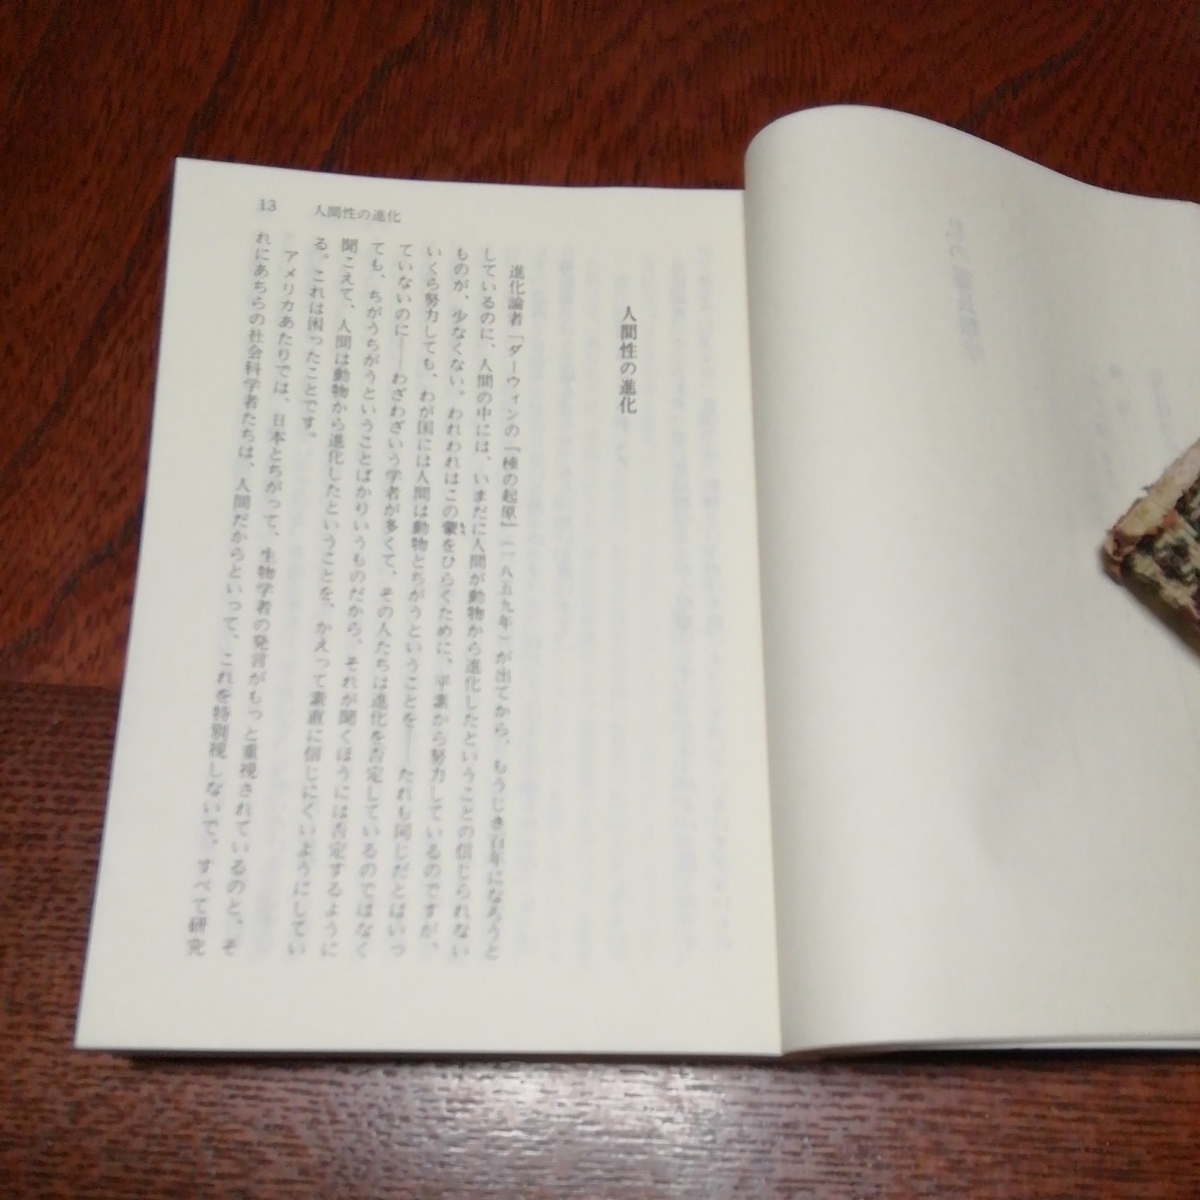 13　人間性の進化
人間性の進化
進化論者「ダーウィンの『種の起原』(一八五九年)が出てから、もうじき百年になろうと
しているのに、人間の中には、いまだに人間が動物から進化したということの信じられない
ものが、少なくない。われわれはこの蒙をひらくために、平素から努力しているのですが、
いくら努力しても、わが国には人間は動物とちがうということを――たれも同じだとはいっ
ていないのに――わざわざいう学者が多くて、その人たちは進化を否定しているのではなく
ても、ちがうちがうということばかりいうものだから、それが聞くほうには否定するように
聞こえて、人間は動物から進化したということを、かえって素直に信じにくいようにしてい
る。これは困ったことです。
アメリカあたりでは、日本とちがって、生物学者の発言がもっと重視されているのと、そ
れにあちらの社会科学者たちは、人間だからといって、これを特別視しないで、すべて研究